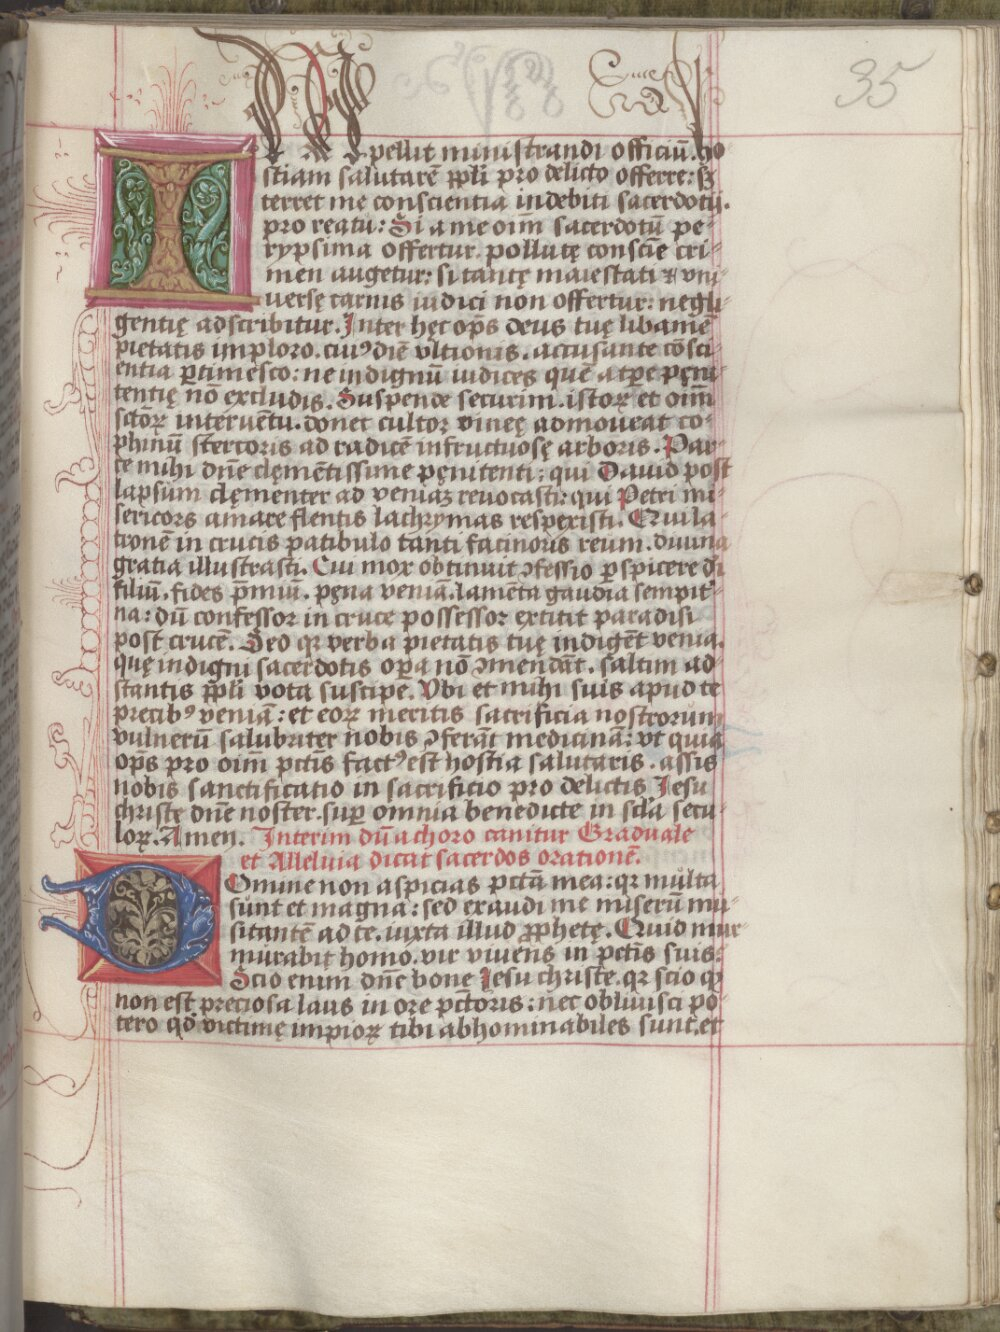 35
IMpellit ministrandi officiū. ho-
stiam salutarē ppl̄i pro delicto offerre: sꝫ
terret me conscientia indebiti sacerdotij.
pro reatu: Si a me oīm sacerdotū pe-
rypsima offertur. pollutę consciē cri-
men augetur: si tantę maiestati ⁊ vni-
uersę carnis iudici non offertur: negli-
gentię adscribitur. Inter hęc op̄s deus tuę libamē
pietatis imploro. cuiꝰ diē vltionis. accusante cōsci-
entia ꝑtimesco: ne indignū iudices quē a tꝑe pęni-
tentię nō excludis. Suspende securim. istoꝝ et oīm
sctōꝝ interuētu. donec cultor vineę admoueat co-
phinū stercoris ad radicē infructuosę arboris. Par-
ce mihi dn̄e clęmētissime pęnitenti: qui Dauid post
lapsum clęmenter ad veniaꝫ reuocasti: qui Petri mi-
sericors amare flentis lachrymas respexisti. Qui la-
tronē in crucis patibulo tanti facinoris reum. diuina
gratia illustrasti. Cui mox obtinuit ꝯfessio ꝑspicere di
filiū. fides p̄miū. pęna veniā. lamēta gaudia sempit̄-
na: dū confessor in cruce possessor extitit paradisi
post crucē. Sed qꝛ verba pietatis tuę indigēt venia.
quę indigni sacerdotis oꝑa nō ꝯmendāt. saltim ad-
stantis ppl̄i vota suscipe. Vbi et mihi suis apud te
precibꝰ veniā: et eoꝝ meritis sacrificia nostrorum
vulnerū salubriter nobis ꝯferāt medicinā: vt quia
op̄s pro oīm pctis̄ factꝰ est hostia salutaris. assis
nobis sanctificatio in sacrificio pro delictis Iesu
christe dn̄e noster. suꝑ omnia benedicte in scl̄a secu-
loꝝ. Amen. Interim dū a choro canitur Graduale
et Alleluia dicat sacerdos orationē.
DOmine non aspicias pctā mea: qꝛ multa
sunt et magna: sed exaudi me miserū mu-
sitantē ad te. iuxta illud ꝓphetę. Quid mur-
murabit homo. vir viuens in pctīs suis:
Scio enim dn̄e bone Iesu christe. qꝛ scio qꝫ
non est preciosa laus in ore pctōris: nec obliuisci po-
tero qd̄ victimę impioꝝ tibi abhominabiles sunt. et